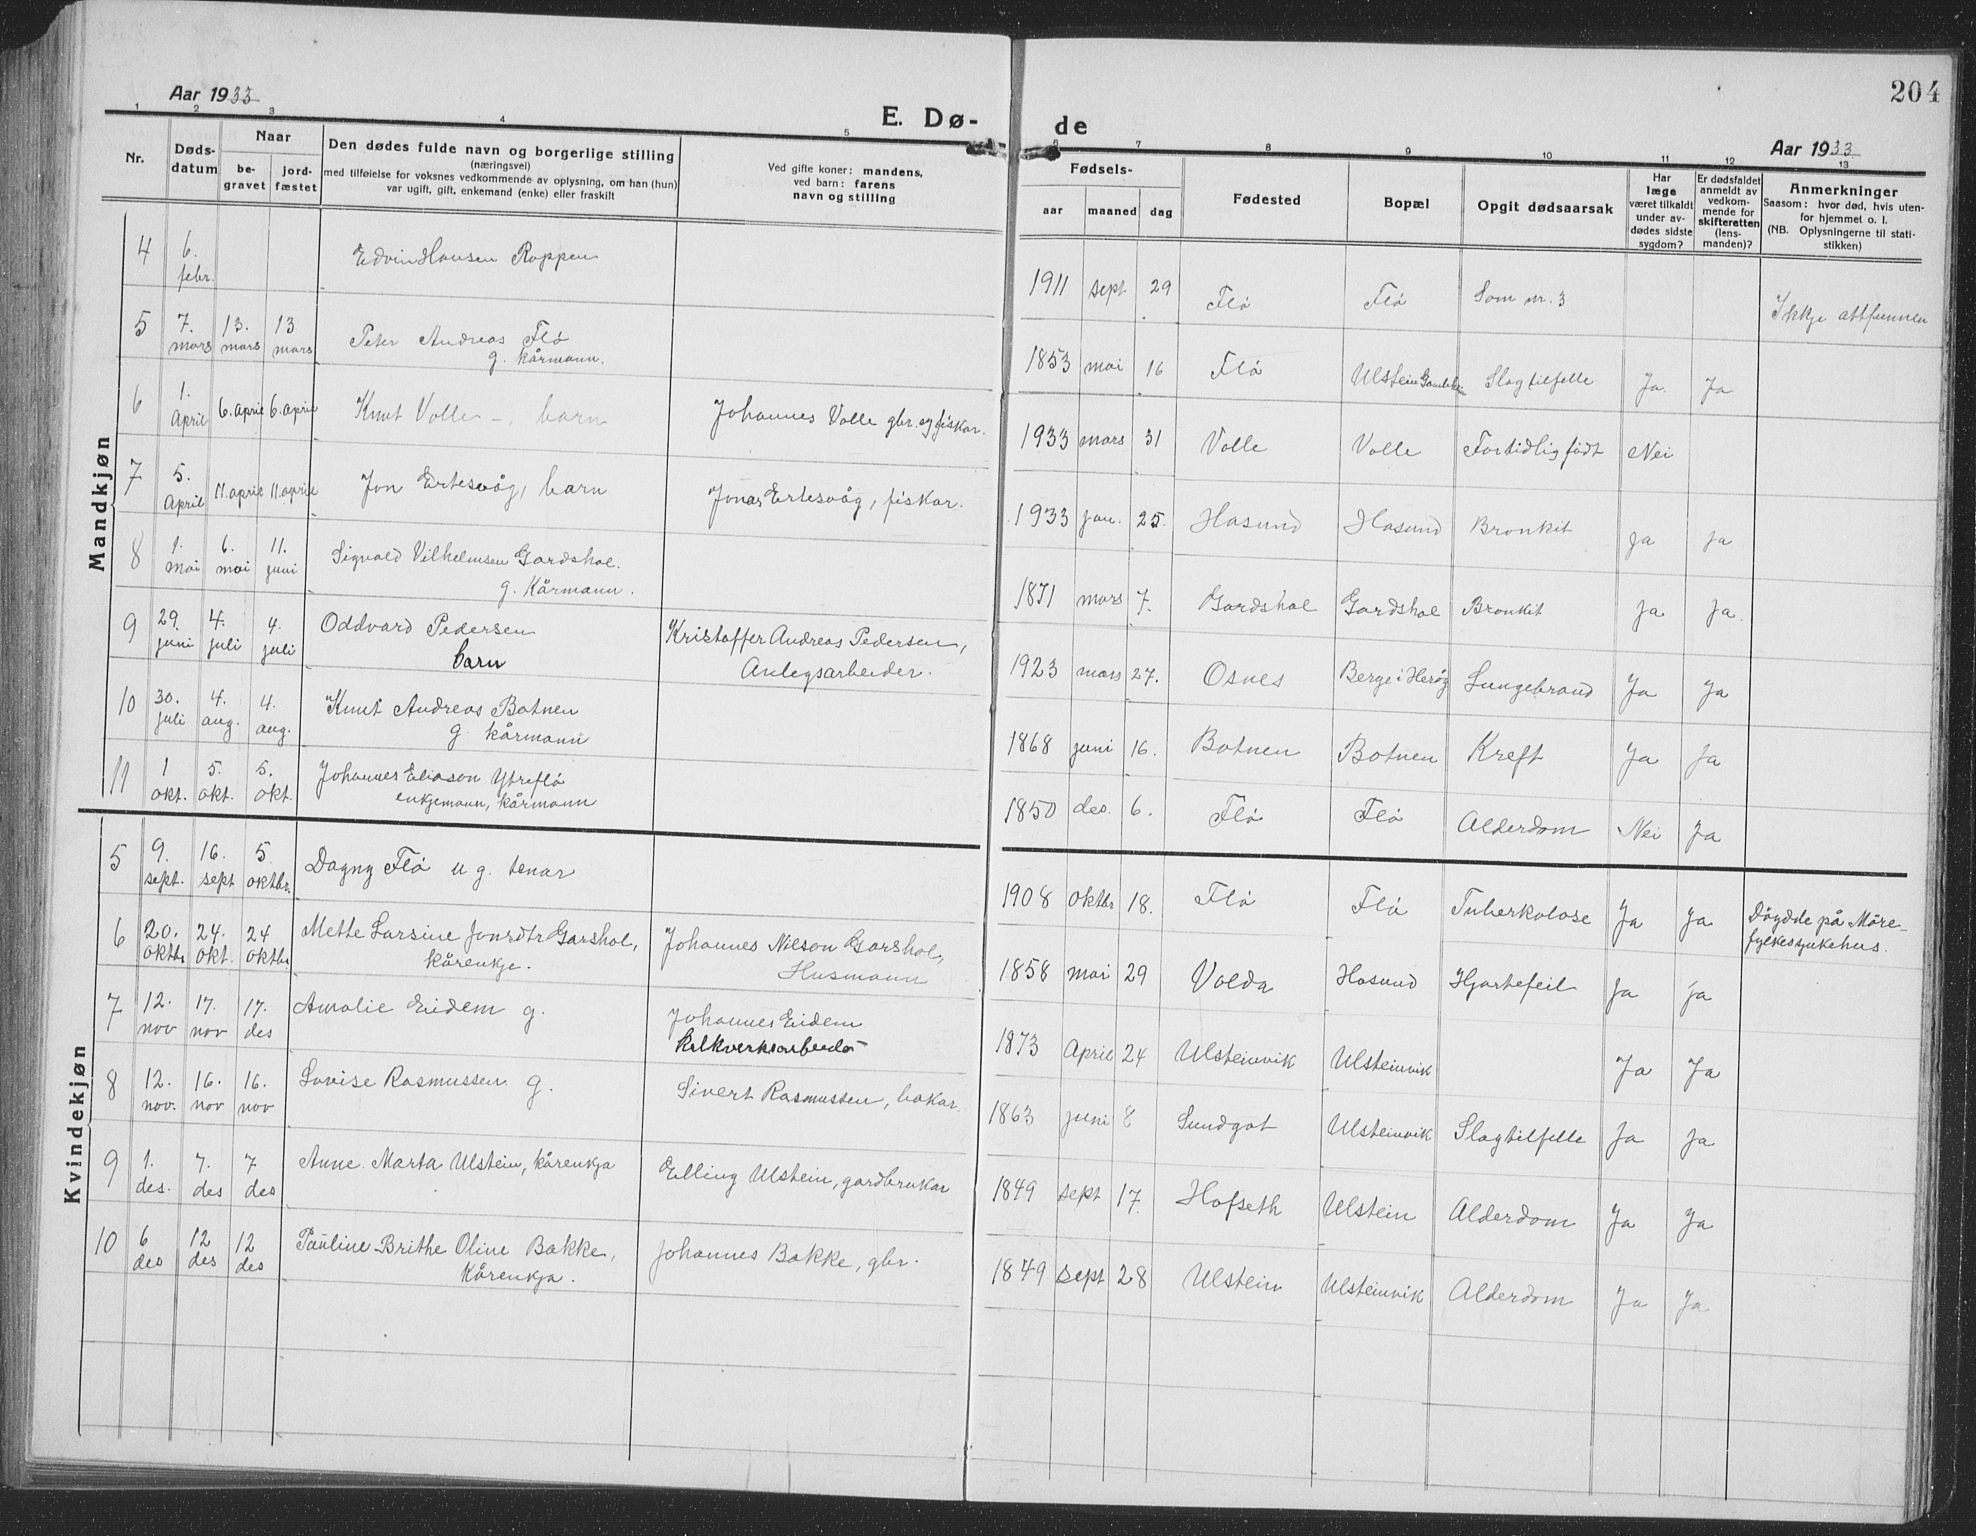 204
Aar 1933
E. Dø-
de
Aar 1933
1 2 3 4 5 6 7 8 9 10 11 12 13
Nr.
Døds-
datum
Naar
be-
gravet
jord-
fæstet
Den dødes fulde navn og borgerlige stilling
(næringsvei)
med tilføielse for voksnes vedkommende av oplysning, om han (hun)
var ugift, gift, enkemand (enke) eller fraskilt
Ved gifte koner: mandens,
ved barn: farens
navn og stilling
Fødsels-
aar maaned dag
Fødested
Bopæl
Opgit dødsaarsak
Har
læge
været tilkaldt
under av-
dødes sidste
sygdom?
Er dødsfaldet
anmeldt av
vedkom-
mende for
skifteretten
(lens-
manden)?
Anmerkninger
Saasom: hvor død, hvis uten-
for hjemmet o. l.
(NB. Oplysningerne til stati-
stikken)
Mandkjøn
4 6. febr. Edvin Hansen Roppen 1911 sept 29 Flø Flø Som nr. 3 Ikkje attfunnen
5 7. mars 13. mars 13 mars Peter Andreas Flø
g. kårmann. 1853 mai 16 Flø Ulstein Slagtilfelle Ja. Ja
6 1. April 6. april 6. april Knut Volle -, barn Johannes Volle gbr. og fiskar. 1933 mars 31 Volle Volle Fortidlig født Nei
7 5. April 11. april 11. april Jon Ertesvåg, barn Jonas Ertesvåg, fiskar. 1933 jan. 25. Hasund Hasund Bronkit Ja Ja
8 1. mai 6. mai 11. juni Sigvald Vilhelmsen Gardshol.
g. Kårmann. 1871 mars 7. Gardshol Gardshol Bronkit Ja Ja.
9 29. juni 4. juli 4. juli Oddvard Pedersen
barn Kristoffer Andreas Pedersen,
Anlegsarbeider. 1923 mars 27. Osnes Berge i Herøy Lungebrand Ja Ja
10 30. juli 4. aug. 4. aug. Knut Andreas Botnen
g kårmann 1868 juni 16. Botnen Botnen Kreft Ja Ja
11 1 okt. 5. okt. 5. okt. Johannes Eliason Ytreflø
enkjemann, kårmann 1850 des. 6. Flø Flø Alderdom Nei Ja
Kvindekjøn
5 9. sept. 16. sept 5 oktbr. Dagny Flø u g. tenar 1908 oktbr 18. Flø Flø Tuberkolose Ja Ja Døydde på Møre-
fylkessjukehus.
6 20. oktbr 24. okt. 24 oktbr. Mette Larsine Jonsdtr Garshol,
kårenkje. Johannes Nilson Garshol,
Husmann 1858 mai 29 Volda Hasund Hjartefeil Ja Ja
7 12. nov 17. nov 17. des Amalie Eidem g. Johannes Eidem
kalkverksarbeider 1873 April 24 Ulsteinvik Ulsteinvik Ja Ja
8 12. nov. 16. nov 16. nov Lovise Rasmussen g. Sivert Rasmussen, bakar. 1863 juni 8 Sundgot Ulsteinvik Slagtilfelle Ja Ja
9 1. des. 7. des 7 des Anne Marta Ulstein, kårenkja Elling Ulstein, gardbrukar 1849 sept 17. Hofseth Ulstein Alderdom Ja Ja
10 6 des 12 des 12 des Pauline Brithe Oline Bakke,
Kårenkja. Johannes Bakke, gbr. 1849 sept 28 Ulstein Ulsteinvik Alderdom Ja Ja